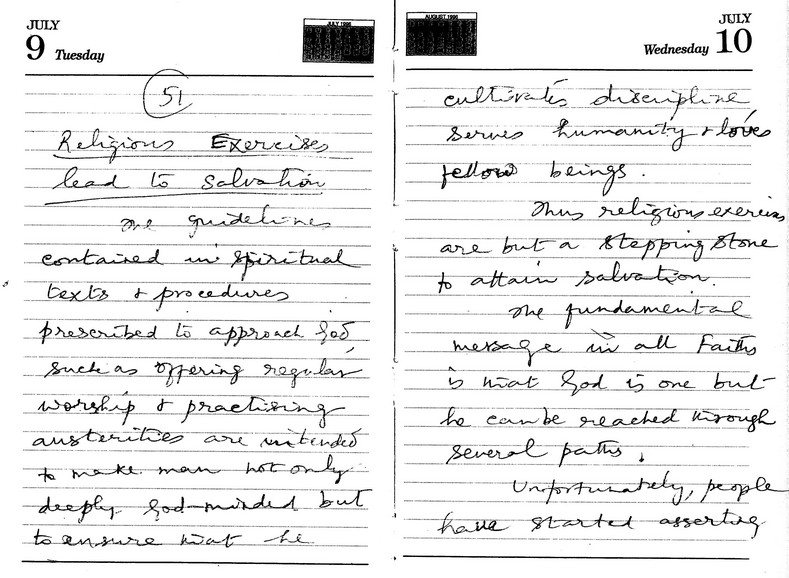 JULY
9 Tuesday
JULY 1996
51
Religious Exercises
lead to salvation
The guidelines
contained in spiritual
texts & procedures
prescribed to approach God
such as offering regular
worship & practising
austerities are intended
to make man not only
deeply God-minded but
to ensure that he
AUGUST 1996
JULY
Wednesday 10
cultivates discipline
serves humanity & loves
fellow beings.
Thus religious exercises
are but a stepping stone
to attain salvation.
The fundamental
message in all Faiths
is that God is one but
he can be reached through
several paths.
Unfortunately, people
have started asserting